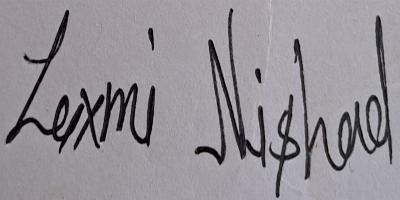 Laxmi Nishad